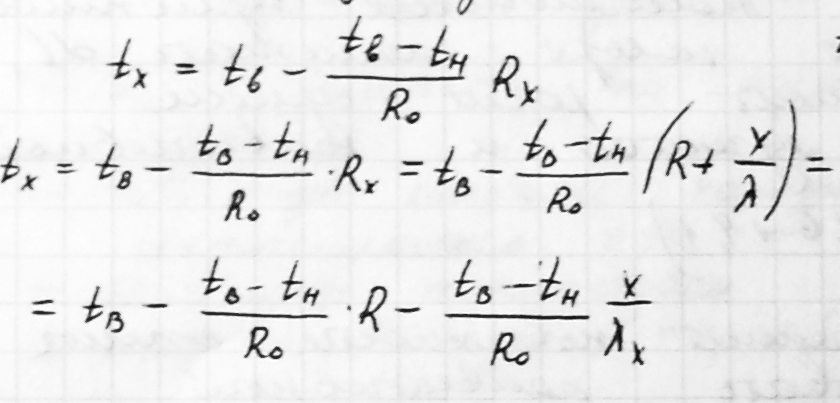 tₓ = tв − (tв − tн)/R₀ Rₓ
tₓ = tв − (tв − tн)/R₀ · Rₓ = tв − (tв − tн)/R₀ (R + x/λ) =
= tв − (tв − tн)/R₀ · R − (tв − tн)/R₀ x/λₓ